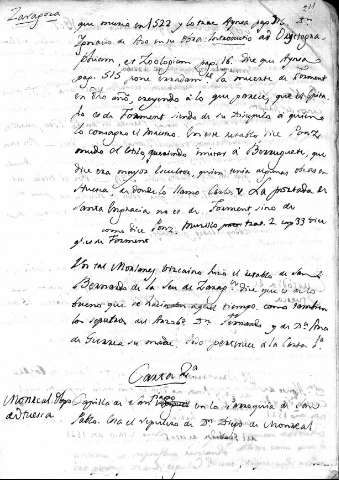 Zaragoza
que murio en 1522 y lo trae Aynsa pag. 516. Dn.
Ignacio de Aso en su obra: Introductio ad Oryctogra
phicam, et Zoologiam pag. 16. Dice que Aynsa
pag. 515 pone la muerte de Forment
en dho año, creyendo a lo que parece, que el
de Forment siendo de su Discipulo a quien
lo consagro el Maestro. En este retablo dice Ponz
mudo el estilo queriendo imitar a Berruguete, que
dice era mayor Escultor, quien tenia algunas obras en
Huesca, en donde lo llamo Carlos V. La portada de
Santa Engracia no es de Forment sino de
como dice Ponz, Murillo trat. 2 cap 33 dice
q.e es de Forment
Un tal Moslanes Vizcaino hizo el retablo de San
Bernardo de la Seu de Zarag.za dice que es de lo
bueno que se hacia en aquel tiempo. como tambien
los sepulcros del Arzbo. Dn. Fernando, y de Da. Ana
de Gurrea su madre. Esto pertenece a la Carta 1a.
Carta 2a
Monreal Obpo.
de Huesca
Capilla de Santiago en la Parroquia de San
Pablo. Esta el sepulcro de Dn. Diego de Monreal